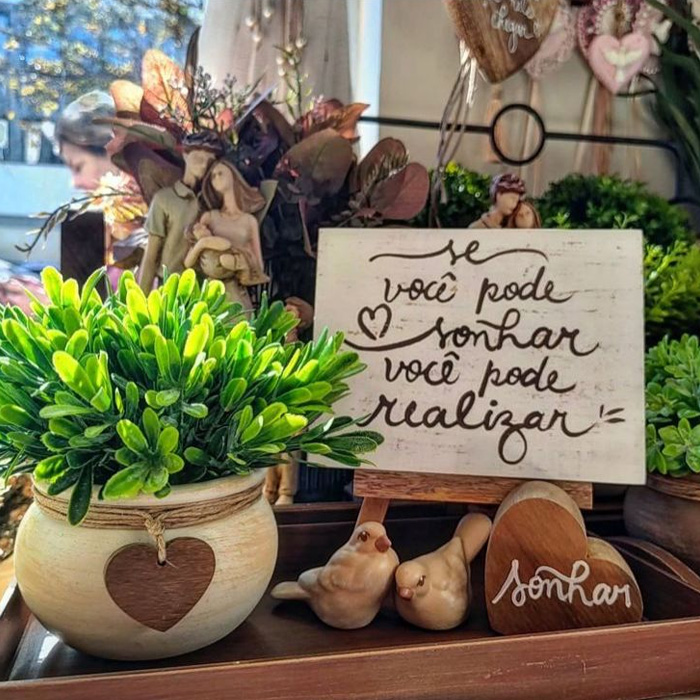 chegar
se
você pode
sonhar
você pode
realizar
sonhar